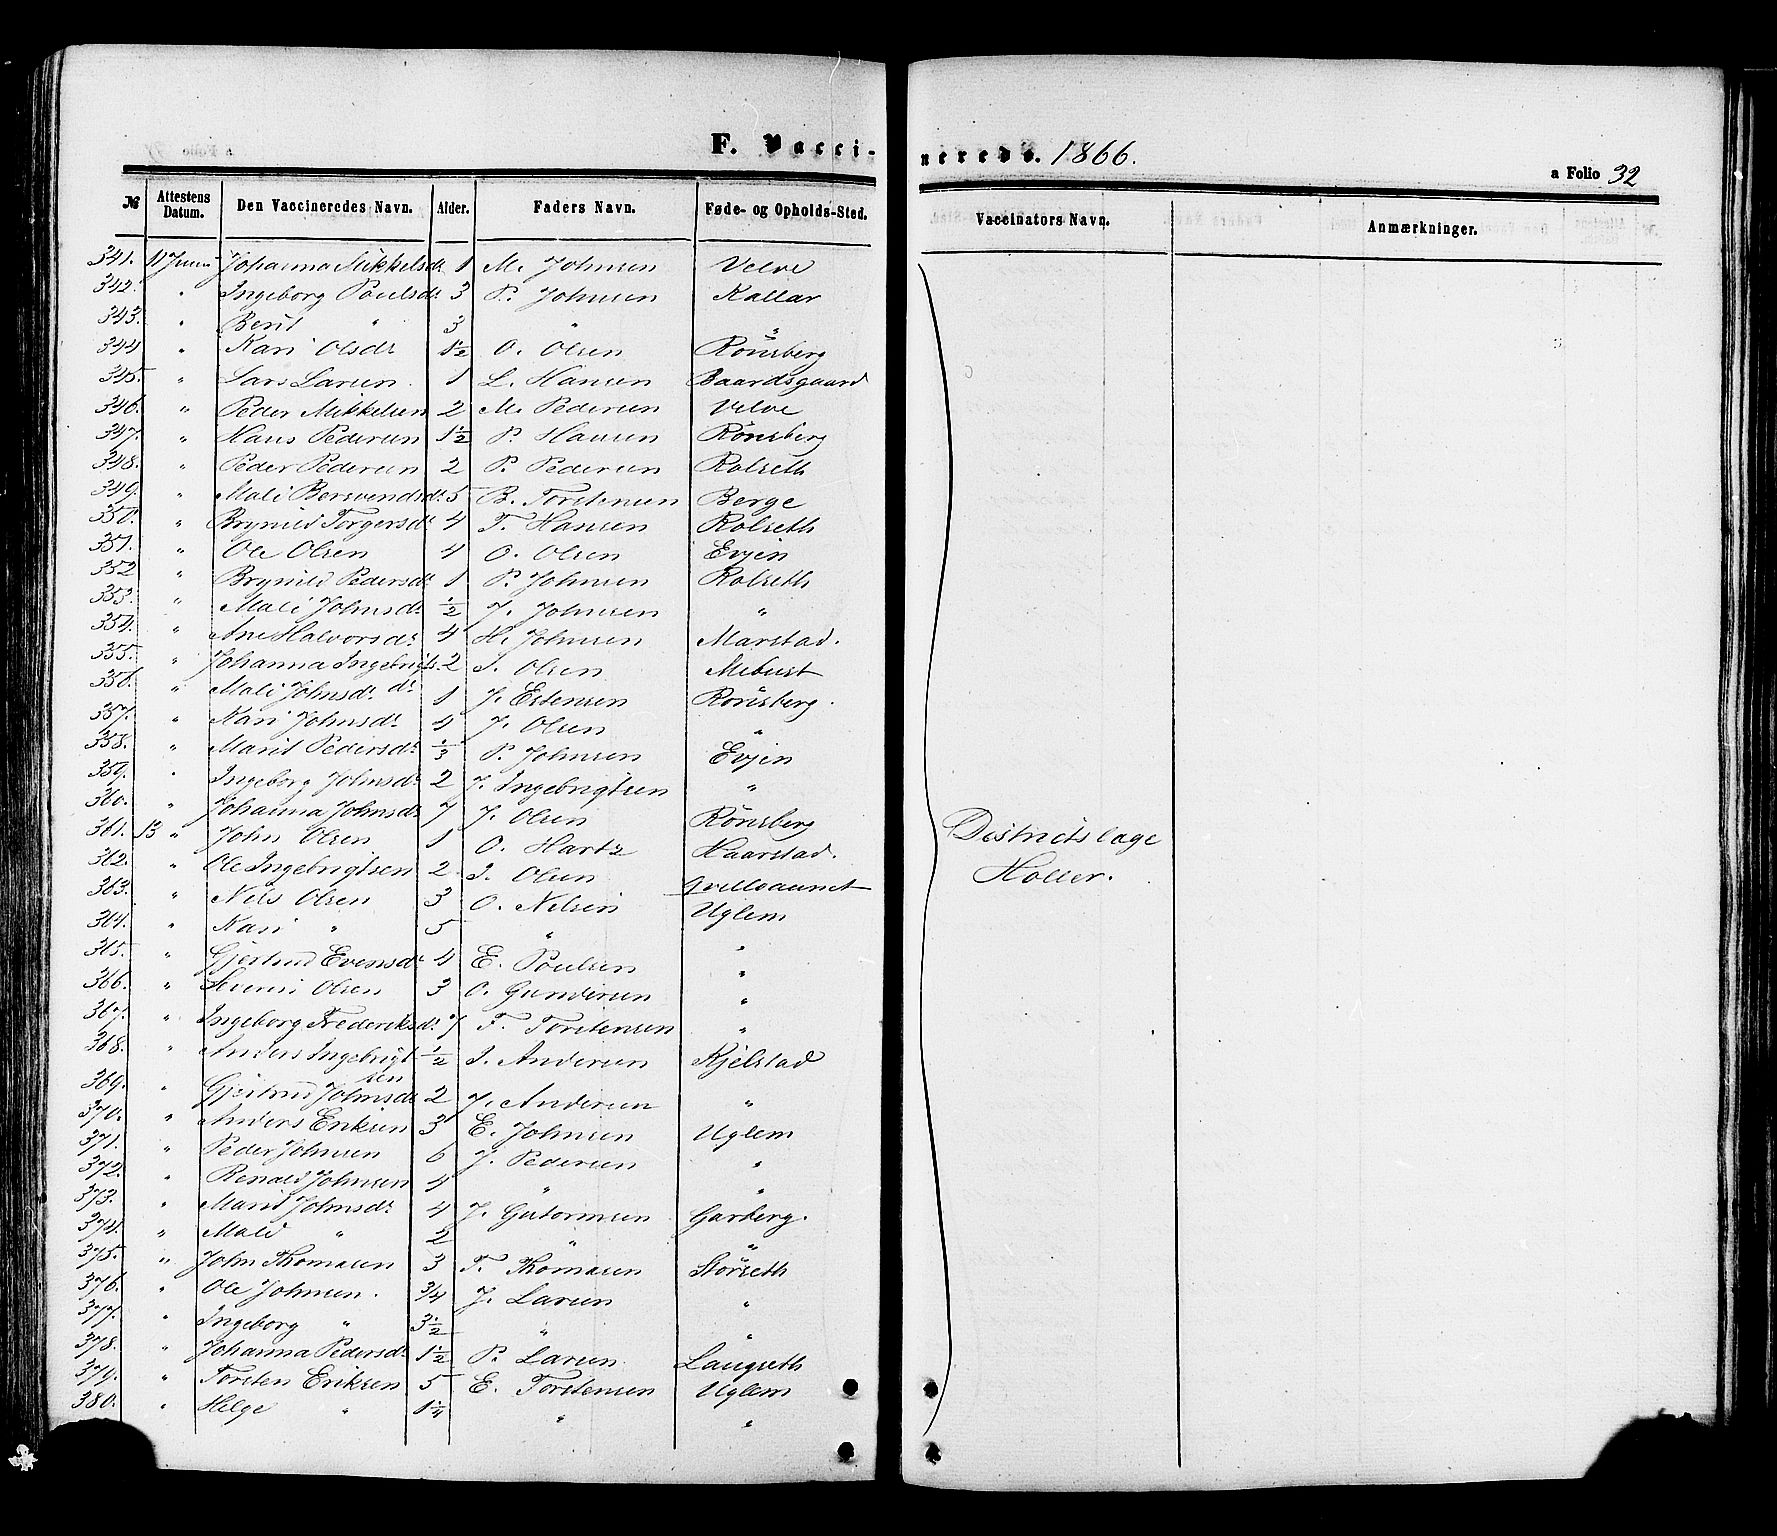 F. Vacci-
neredo. 1866.
a Folio 32
№ Attestens Datum. Den Vaccineredes Navn. Alder. Faders Navn. Føde- og Opholds-Sted. Vaccinators Navn. Anmærkninger.
341. 11 Juni Johanna Mikkelsdr 1 M. Johnsen Velve
342. " Ingeborg Poulsdr 3 P. Johnsen Kallar
343. " Berit " 3 " "
344 " Kari Olsdr 1½ O. Olsen Rönsberg
345. " Lars Larsen. 1 L. Hansen Baardsgaard
346. " Peder Mikkelsen 2 M. Pedersen Velve
347. " Hans Pedersen 1½ P. Hansen Rönsberg
348. " Peder Pedersen 2 P. Pedersen Rolseth
349. " Mali Bersvendsdr 5 B. Torstensen Berge
350. " Brynild Torgersdr 4 T. Hansen Rolseth
351. " Ole Olsen 4 O. Olsen Evjen
352 " Brynild Pedersdr 1 P. Johnsen Rolseth
353. " Mali Johnsdr ½ J. Johnsen "
354. " Ane Halvorsdr 4 H. Johnsen Marstad.
355. " Johanna Ingebrigts.dr 2 I. Olsen Mebust
356. " Mali Johnsdr 1 J. Estensen Rönsberg.
357. " Kari Johnsdr 4 J. Olsen "
358. " Marit Pedersdr ⅓ P. Johnsen Evjen
359. " Ingeborg Johnsdr 2 J. Ingebrigtsen "
360. " Johanna Johnsdr 7 J. Olsen Rönsberg
361. 13 " John Olsen 1 O. Hartz Haarstad.
362. " Ole Ingebrigtsen 2 I. Olsen
363. " Nils Olsen 3 O. Nilsen Uglem
364. " Kari " 5 " "
365. " Gjertrud Evensdr 4 E. Poulsen "
366. " Olsen 3 O. Gundersen "
367. " Ingeborg Frederiksdr 7 F. Torstensen "
368. " Anders Ingebrigtsen ½ I. Andersen Kjelstad
369. " Gjertrud Johnsdr 2 J. Andersen "
370. " Anders Eriksen 3 E. Johnsen Uglem
371. " Peder Johnsen 6 J. Pedersen "
372. " Renald Johnsen 4 " "
373. " Marit Johnsdr 4 J. Guttormsen Garberg.
374. " Mali " 2 " "
375. " John Thomasen 3 T. Thomasen Störseth
376. " Ole Johnsen. ¾ J. Larsen "
377. " Ingeborg " 3½ " "
378. " Johanna Pedersdr 1½ P. Larsen Langseth
379. " Torsten Eriksen 5 E. Torstensen Uglem
380. " Helge " 1¼ " "
Districtslæge
Holler.